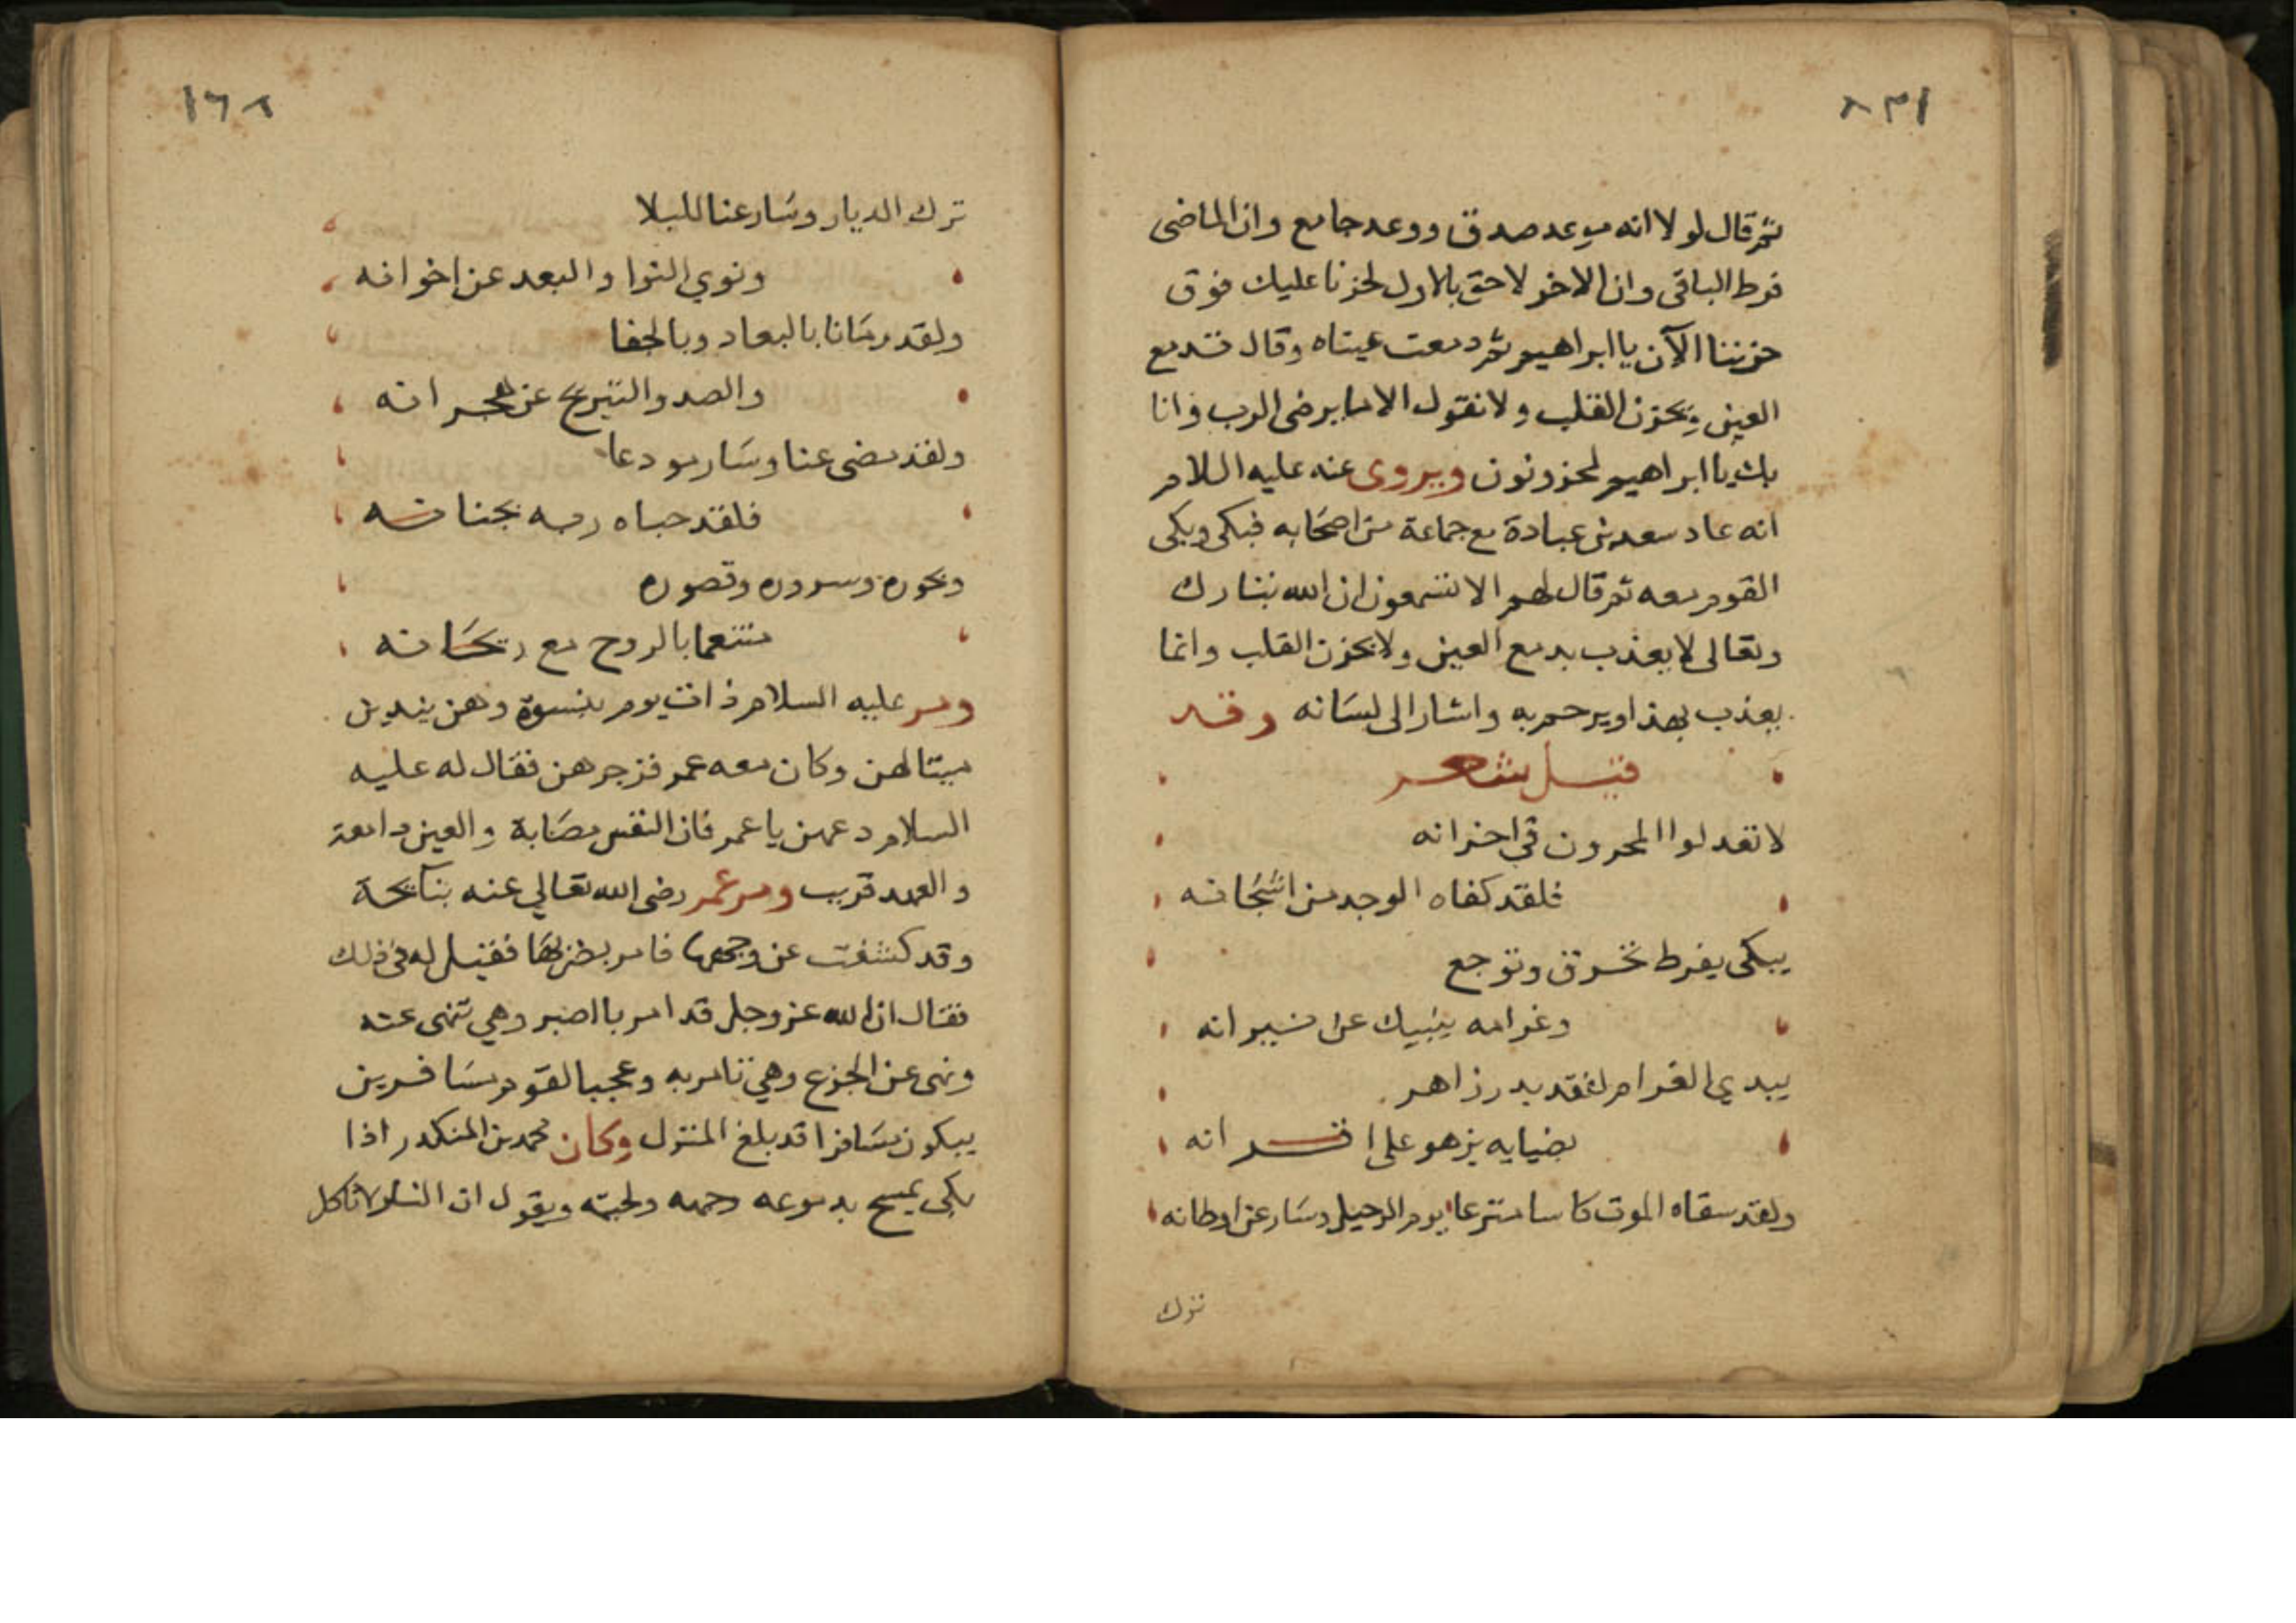 ١٣٨
ثم قال لولا انه موعد صدق ووعد جامع وان الماضى
فرط الباقى وان الاخر لاحق بالاول لحزنا عليك فوق
حزننا الآن يا ابراهيم ثم دمعت عيناه وقال تدمع
العين ويحزن القلب ولا نقول الا ما يرضى الرب وانا
بك يا ابراهيم لمحزونون ويروى عنه عليه السلام
انه عاد سعد بن عبادة مع جماعة من اصحابه فبكى وبكى
القوم معه ثم قال لهم الا تسمعون ان الله تبارك
وتعالى لا يعذب بدمع العين ولا بحزن القلب وانما
يعذب بهذا او يرحم به واشار الى لسانه وقد
قيل شعر
لا تعدلوا المحزون في احزانه
فلقد كفاه الوجد من اشجانه
يبكى بفرط تحرق وتوجع
وغرامه ينبيك عن نيرانه
يبدي الغرام لفقد بدر زاهر
بضيايه يزهو على اقرانه
ولقد سقاه الموت كاسا مترعا يوم الرحيل وسار عن اوطانه
ترك
١٦٨
ترك الديار وسار عنا لليلا
ونوي النوا والبعد عن اخوانه
ولقد رمانا بالبعاد وبالجفا
والصد والتبريح عن هجرانه
ولقد مضى عنا وسار مودعا
فلقد حباه ربه بجنانه
وبحوره وسروره وقصوره
متنعما بالروح مع ريحانه
ومر عليه السلام ذات يوم بنسوة وهن يندبن
ميتا لهن وكان معه عمر فزجرهن فقال له عليه
السلام دعهن يا عمر فان النفس مصابة والعين دامعة
والعهد قريب ومر عمر رضى الله تعالي عنه بنائحة
وقد كشفت عن وجهها فامر بضربها فقيل له في ذلك
فقال ان الله عز وجل قد امر بالصبر وهي تنهى عنه
ونهى عن الجزع وهي تامر به وعجبا لقوم مسافرين
يبكون مسافرا قد بلغ المنزل وكان محمد بن المنكدر اذا
بكى يمسح بدموعه وجهه ولحيته ويقول ان النار لا تاكل